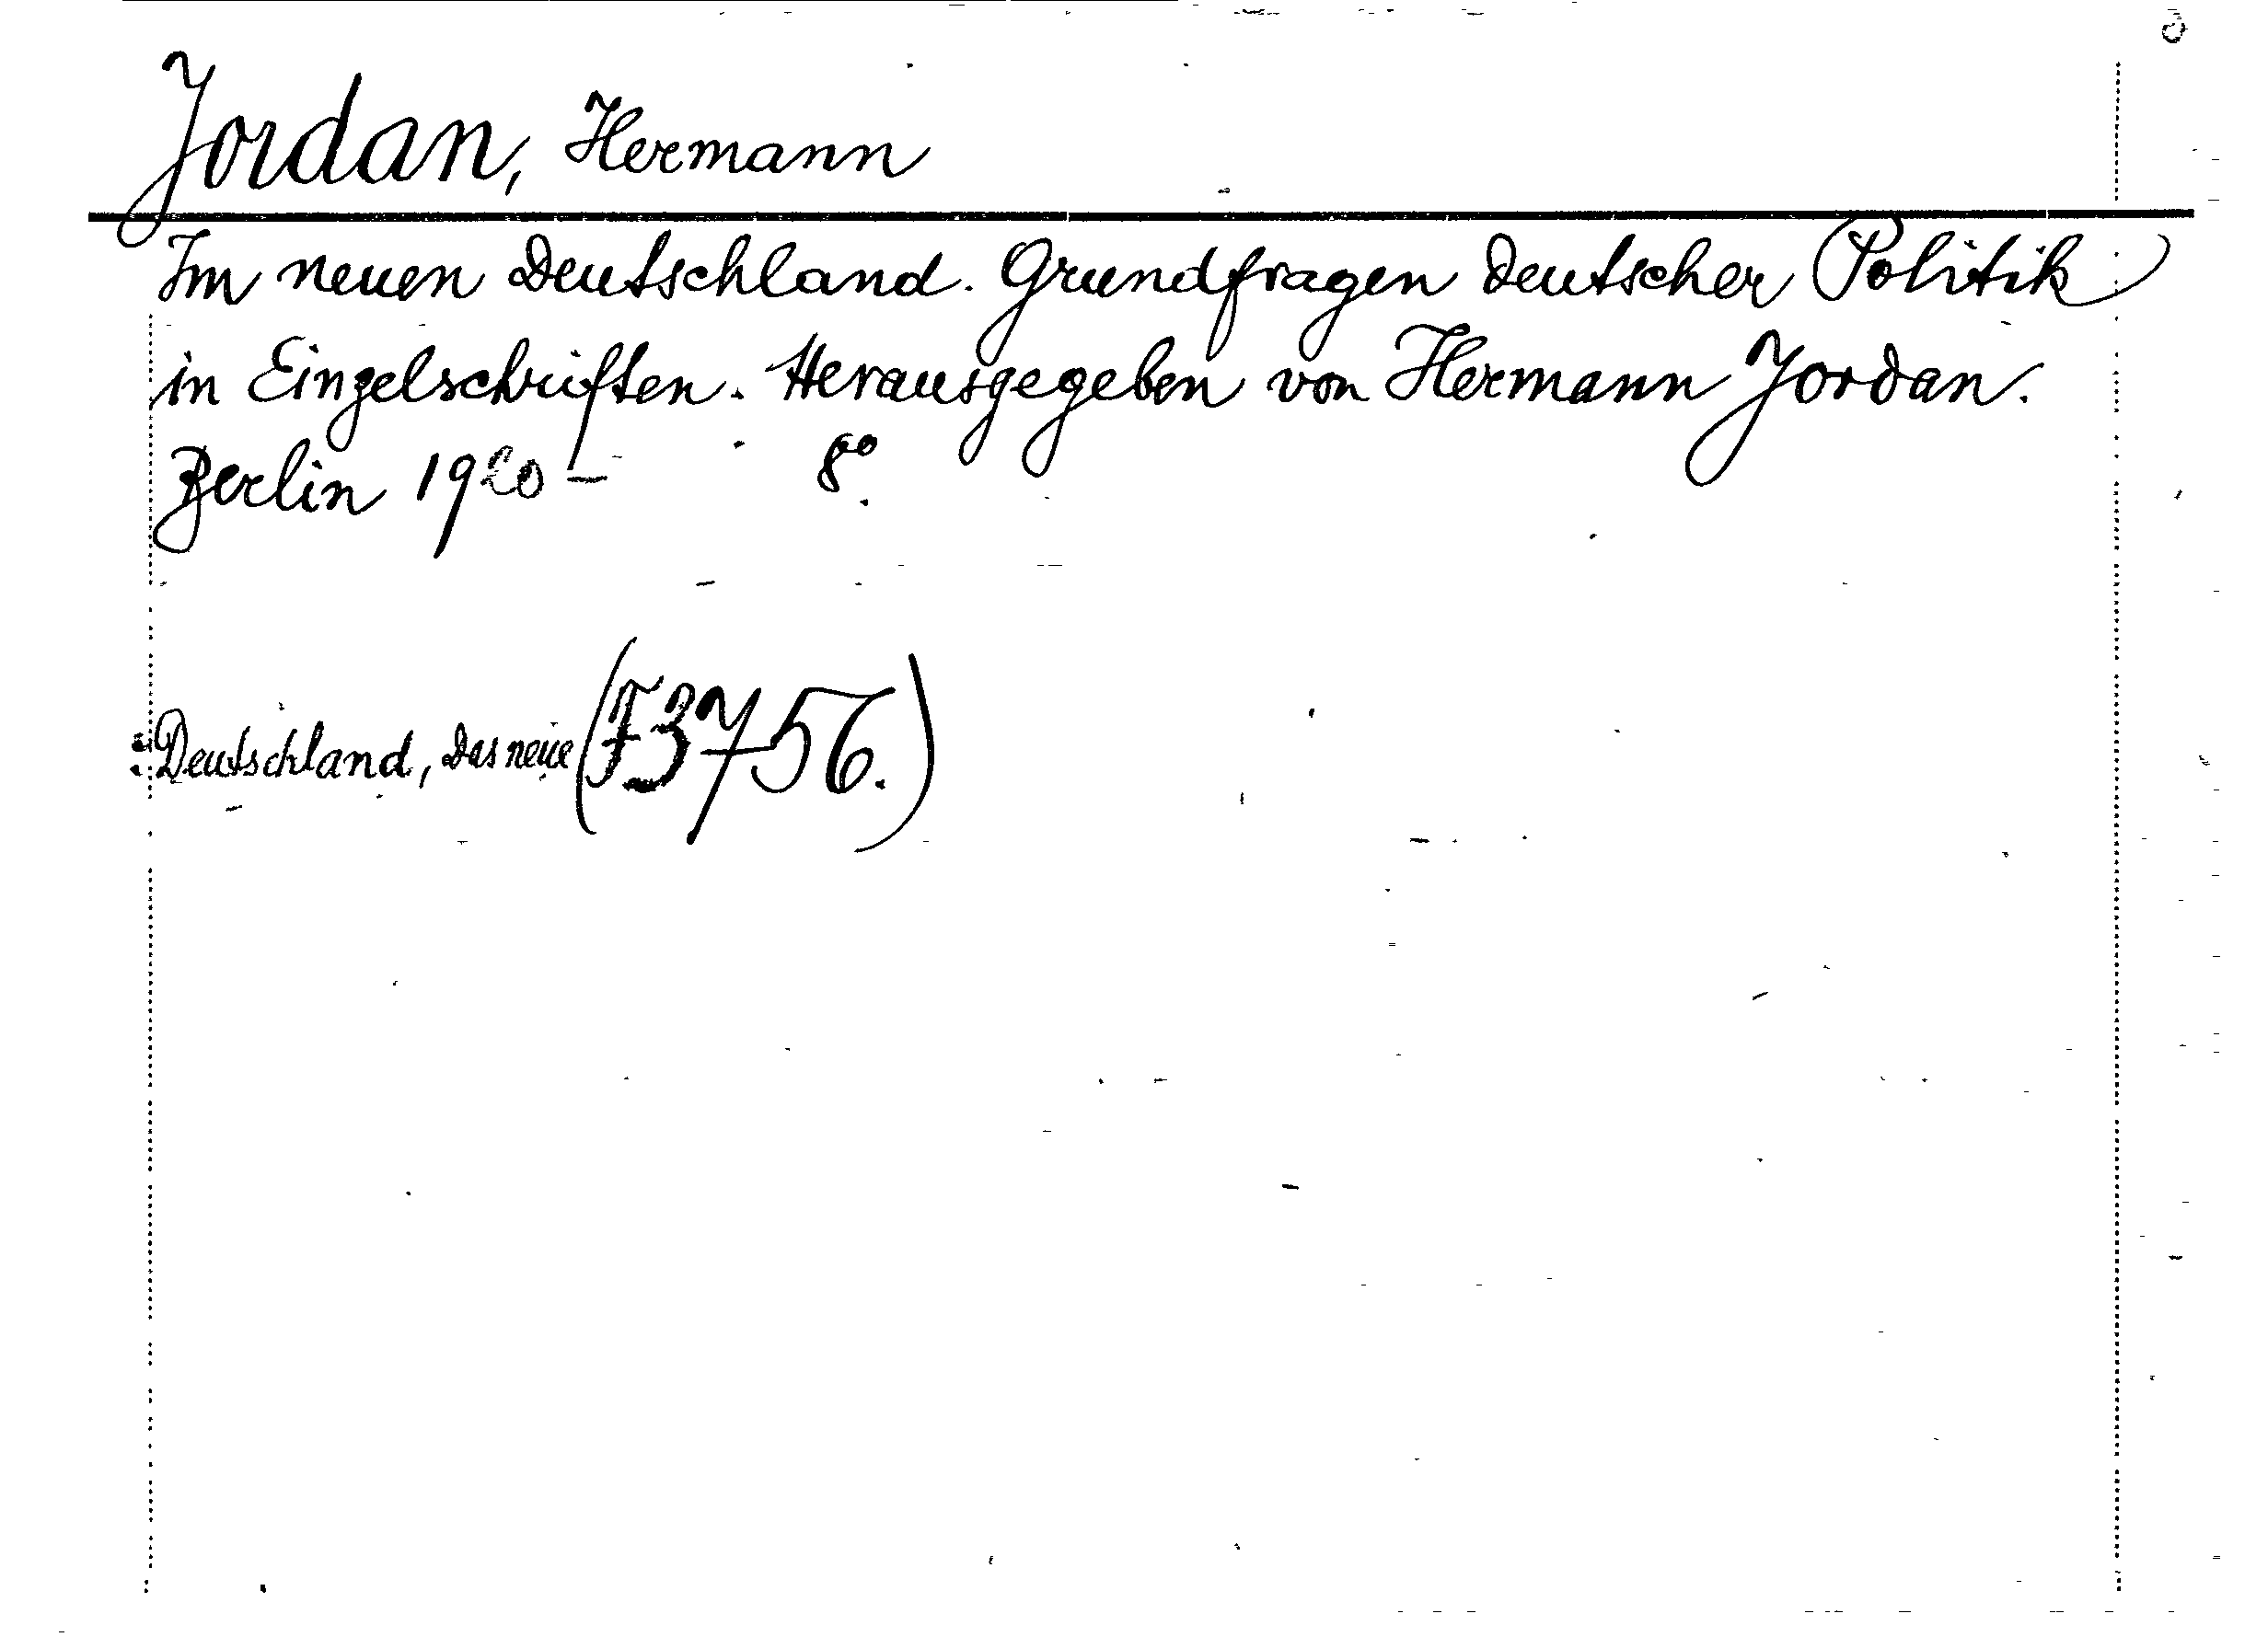 Jordan, Hermann
Im neuen Deutschland. Grundfragen deutscher Politik
in Einzelschriften. Herausgegeben von Hermann Jordan.
Berlin 1920 – 8º.
: Deutschland, das neue (F3756.)